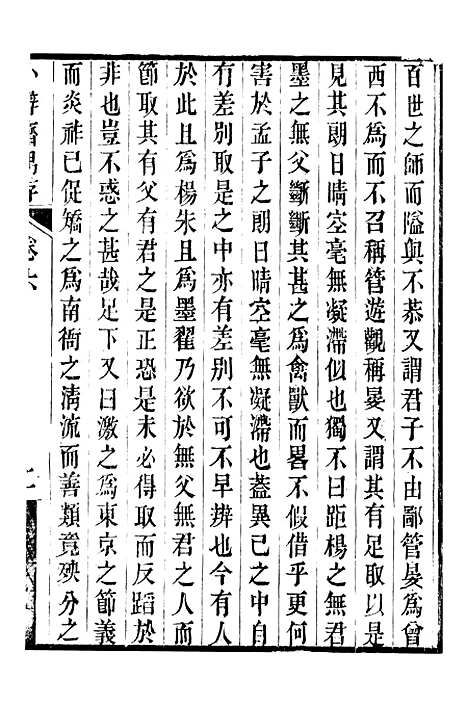 百世之師而隘與不恭又謂君子不由鄙管晏爲曾
西不爲而不召稱管遊觀稱晏又謂其有足取以是
見其朗日晴空毫無凝滯似也獨不曰距楊之無君
墨之無父斷斷其甚之爲禽獸而畧不假借乎更何
害於孟子之朗日晴空毫無凝滯也蓋異己之中自
有差別取是之中亦有差別不可不早辨也今有人
於此且爲楊朱且爲墨翟乃欲於無父無君之人而
節取其有父有君之是正恐是未必得取而反蹈於
非也豈不惑之甚哉足下又曰激之爲東京之節義
而炎祚已促矯之爲南衙之清流而善類竟殃分之
小辨齋偶存
卷六
七